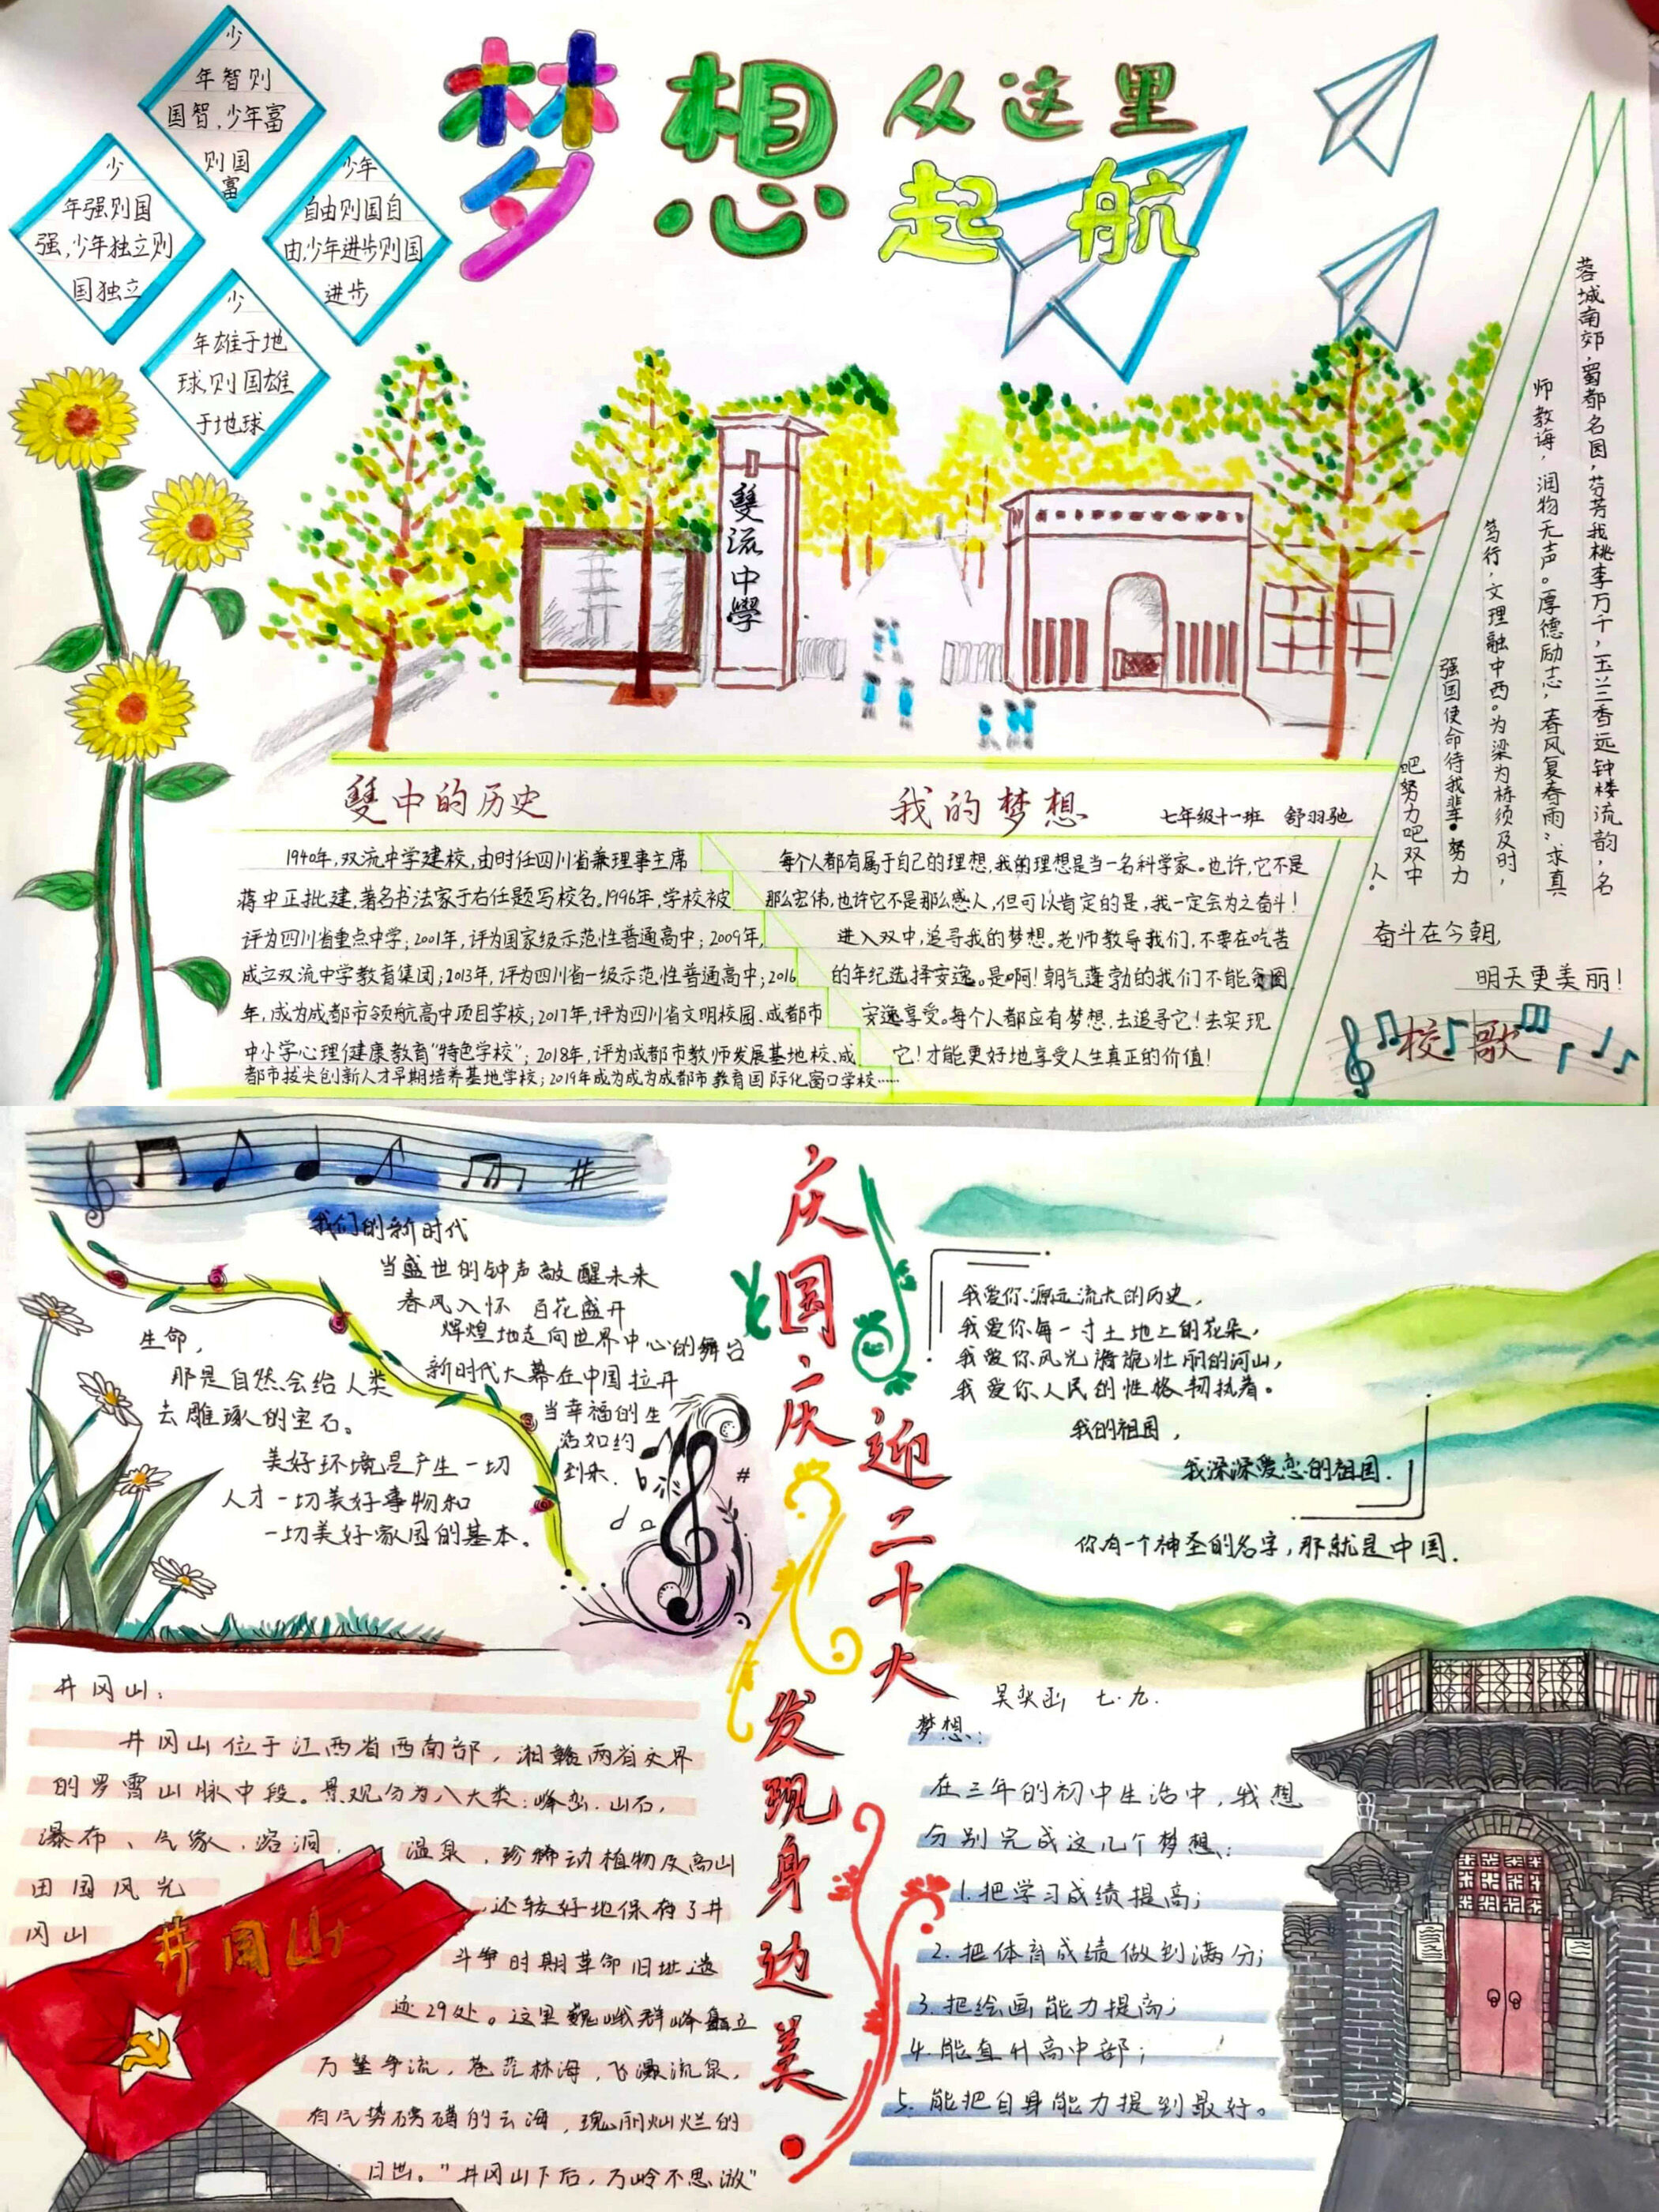 少
年智则
国智,少年富
则国
富
少
年强则国
强,少年独立则
国独立
少年
自由则国自
由,少年进步则国
进步
少
年雄于地
球,则国雄
于地球
梦想从这里
起航
雙流中學
蓉城南郊,蜀都名园,芬芳我桃李万千,玉兰香远钟楼流韵,名
师教诲,润物无声。厚德励志,春风复春雨;求真
笃行,文理融中西。为梁为栋须及时,
强国使命待我辈。努力
吧努力吧双中
人。
奋斗在今朝,
明天更美丽!
校歌
雙中的历史
1940年,双流中学建校,由时任四川省兼理事主席
蒋中正批建,著名书法家于右任题写校名。1996年,学校被
评为四川省重点中学;2001年,评为国家级示范性普通高中;2009年,
成立双流中学教育集团;2013年,评为四川省一级示范性普通高中;2016
年,成为成都市领航高中项目学校;2017年,评为四川省文明校园、成都市
中小学心理健康教育“特色学校”;2018年,评为成都市教师发展基地校、成
都市拔尖创新人才早期培养基地学校;2019年成为成为成都市教育国际化窗口学校……
我的梦想
七年级十一班 舒羽驰
每个人都有属于自己的理想,我的理想是当一名科学家。也许,它不是
那么宏伟,也许它不是那么感人,但可以肯定的是,我一定会为之奋斗!
进入双中,追寻我的梦想。老师教导我们,不要在吃苦
的年纪选择安逸。是啊!朝气蓬勃的我们不能贪图
安逸享受。每个人都应有梦想,去追寻它!去实现
它!才能更好地享受人生真正的价值!
我们的新时代
当盛世的钟声敲醒未来
春风入怀 百花盛开
辉煌地走向世界中心的舞台
新时代大幕在中国拉开
当幸福的生
活如约
到来.
生命,
那是自然会给人类
去雕琢的宝石。
美好环境是产生一切
人才一切美好事物和
一切美好家园的基本。
庆国庆
迎二十大
发现身边美
我爱你源远流长的历史,
我爱你每一寸土地上的花朵,
我爱你风光旖旎壮丽的河山,
我爱你人民的性格韧执着。
我的祖国,
我深深爱恋的祖国.
你有一个神圣的名字,那就是中国.
井冈山:
井冈山位于江西省西南部,湘赣两省交界
的罗霄山脉中段。景观分为八大类:峰峦.山石,
瀑布、气象.溶洞, 温泉,珍稀动植物及高山
田园风光 ,还较好地保存了井
冈山 斗争时期革命旧址遗
迹29处。这里巍峨群峰矗立
万壑争流,苍茫林海,飞瀑流泉,
有气势磅礴的云海,瑰丽灿烂的
日出。“井冈山下后,万岭不思游”
井冈山
七.九.
梦想:
在三年的初中生活中,我想
分别完成这几个梦想:
1.把学习成绩提高;
2.把体育成绩做到满分;
3.把绘画能力提高;
4.能直升高中部;
5.能把自身能力提到最好。